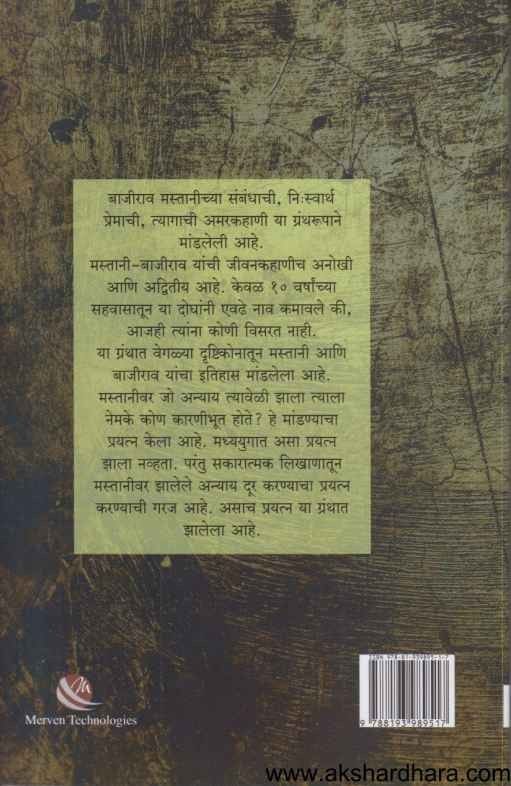 बाजीराव मस्तानीच्या संबंधाची, निःस्वार्थ
प्रेमाची, त्यागाची अमरकहाणी या ग्रंथरूपाने
मांडलेली आहे.
मस्तानी-बाजीराव यांची जीवनकहाणीच अनोखी
आणि अद्वितीय आहे. केवळ १० वर्षांच्या
सहवासातून या दोघांनी एवढे नाव कमावले की,
आजही त्यांना कोणी विसरत नाही.
या ग्रंथात वेगळ्या दृष्टिकोनातून मस्तानी आणि
बाजीराव यांचा इतिहास मांडलेला आहे.
मस्तानीवर जो अन्याय त्यावेळी झाला त्याला
नेमके कोण कारणीभूत होते? हे मांडण्याचा
प्रयत्न केला आहे. मध्ययुगात असा प्रयत्न
झाला नव्हता. परंतु सकारात्मक लिखाणातून
मस्तानीवर झालेले अन्याय दूर करण्याचा प्रयत्न
करण्याची गरज आहे. असाच प्रयत्न या ग्रंथात
झालेला आहे.
Merven Technologies
9 788193 989517
www.akshardhara.com